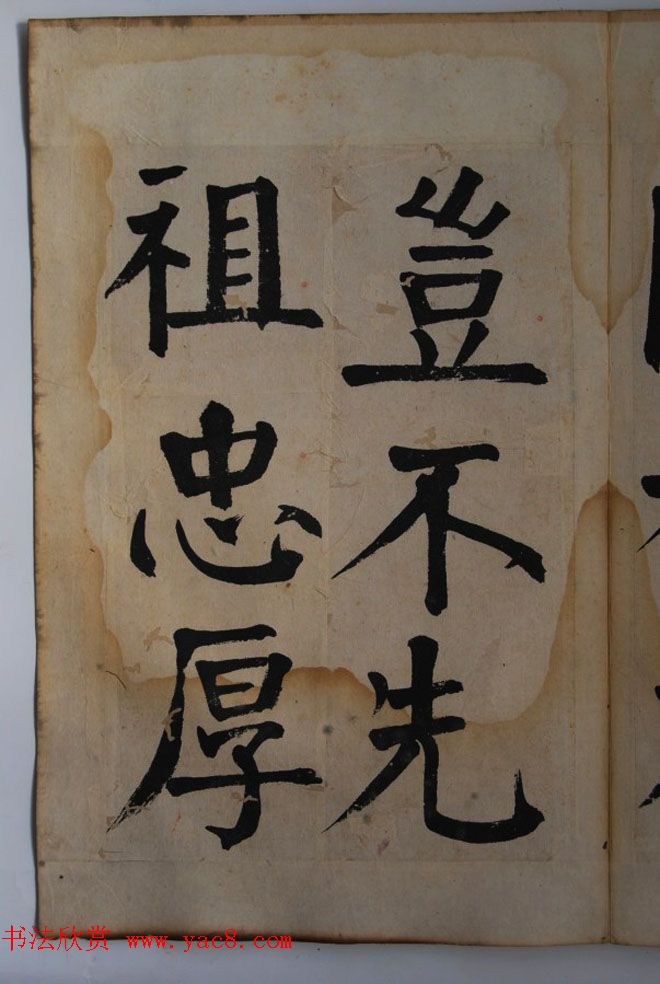 豈不先
祖忠厚
书法欣赏 www.yac8.com